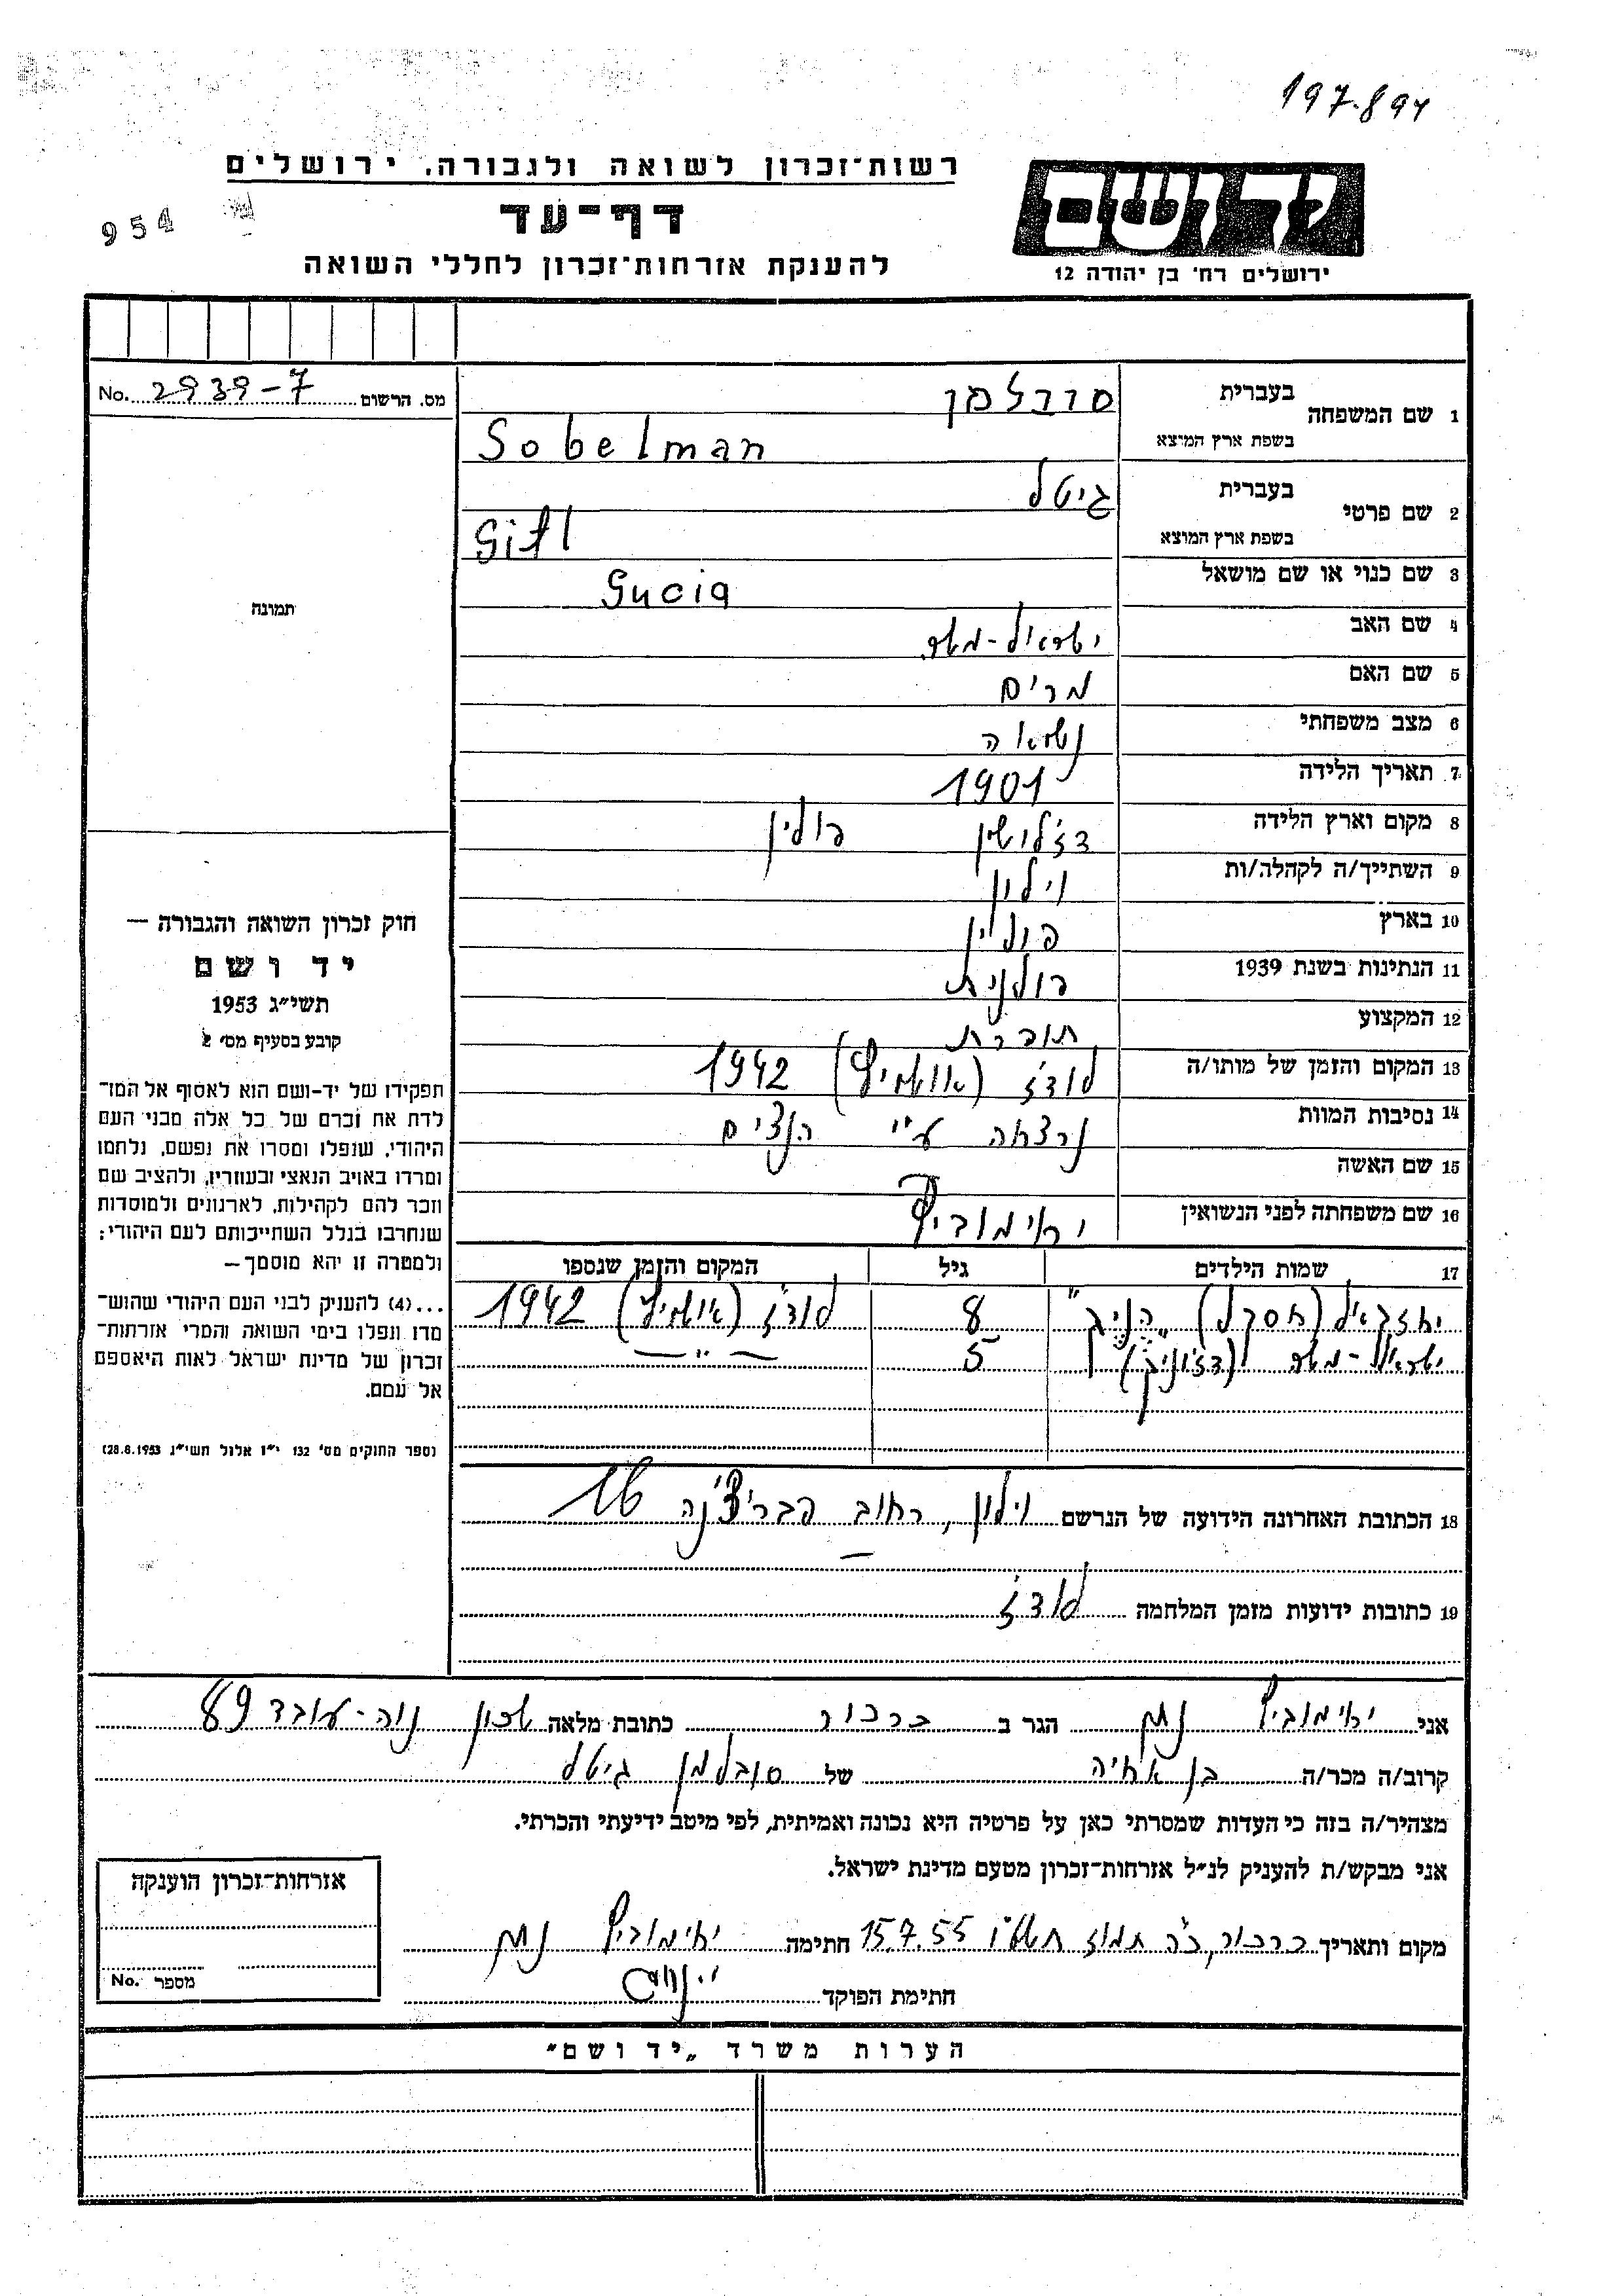 197.894
רשות־זכרון לשואה ולגבורה. ירושלים
954
דף־עד
להענקת אזרחות־זכרון לחללי השואה
יד ושם
ירושלים רח׳ בן יהודה 12
No. 2939-7 מס. הרשום
1 שם המשפחה בעברית סובלמן
בשפת ארץ המוצא Sobelman
2 שם פרטי בעברית גיטל
בשפת ארץ המוצא Gitl
3 שם כנוי או שם מושאל Gucia
תמונה
4 שם האב ישראל-משה
5 שם האם מרים
6 מצב משפחתי נשואה
7 תאריך הלידה 1901
8 מקום וארץ הלידה דז׳לושין פולין
9 השתייך/ה לקהלה/ות וילון
10 בארץ פולין
11 הנתינות בשנת 1939 פולנית
12 המקצוע תופרת
13 המקום והזמן של מותו/ה לודז׳ 1942
14 נסיבות המוות נרצחה ע״י הנצים
15 שם האשה
16 שם משפחתה לפני הנשואין
17 שמות הילדים גיל המקום והזמן שנספו
יחזקאל (חסקל) 8 לודז׳ 1942
ישראל-משה 5 — ״ —
חוק זכרון השואה והגבורה —
יד ושם
תשי״ג 1953
קובע בסעיף מס׳ 2
תפקידו של יד-ושם הוא לאסוף אל המו־
לדת את זכרם של כל אלה מבני העם
היהודי, שנפלו ומסרו את נפשם, נלחמו
ומרדו באויב הנאצי ובעוזריו, ולהציב שם
וזכר להם לקהילות, לארגונים ולמוסדות
שנחרבו בגלל השתייכותם לעם היהודי;
ולמטרה זו יהא מוסמך —
...(4) להעניק לבני העם היהודי שהוש־
מדו ונפלו בימי השואה והמרי אזרחות־
זכרון של מדינת ישראל לאות היאספם
אל עמם.
(ספר החוקים מס׳ 132 י״ז אלול תשי״ג 28.8.1953)
18 הכתובת האחרונה הידועה של הנרשם וילון, רחוב פבריצ׳נה 16
19 כתובות ידועות מזמן המלחמה לודז׳
אני נתן הגר ב כרכור כתובת מלאה שכון נוה-עובד 89
קרוב/ה מכר/ה בן אחיה של סובלמן גיטל
מצהיר/ה בזה כי העדות שמסרתי כאן על פרטיה היא נכונה ואמיתית, לפי מיטב ידיעתי והכרתי.
אני מבקש/ת להעניק לנ״ל אזרחות־זכרון מטעם מדינת ישראל.
מקום ותאריך כרכור, כ״ה תמוז תשט״ו 15.7.55 חתימה נתן
חתימת הפוקד
אזרחות־זכרון הוענקה
מספר No.
הערות משרד „יד ושם״